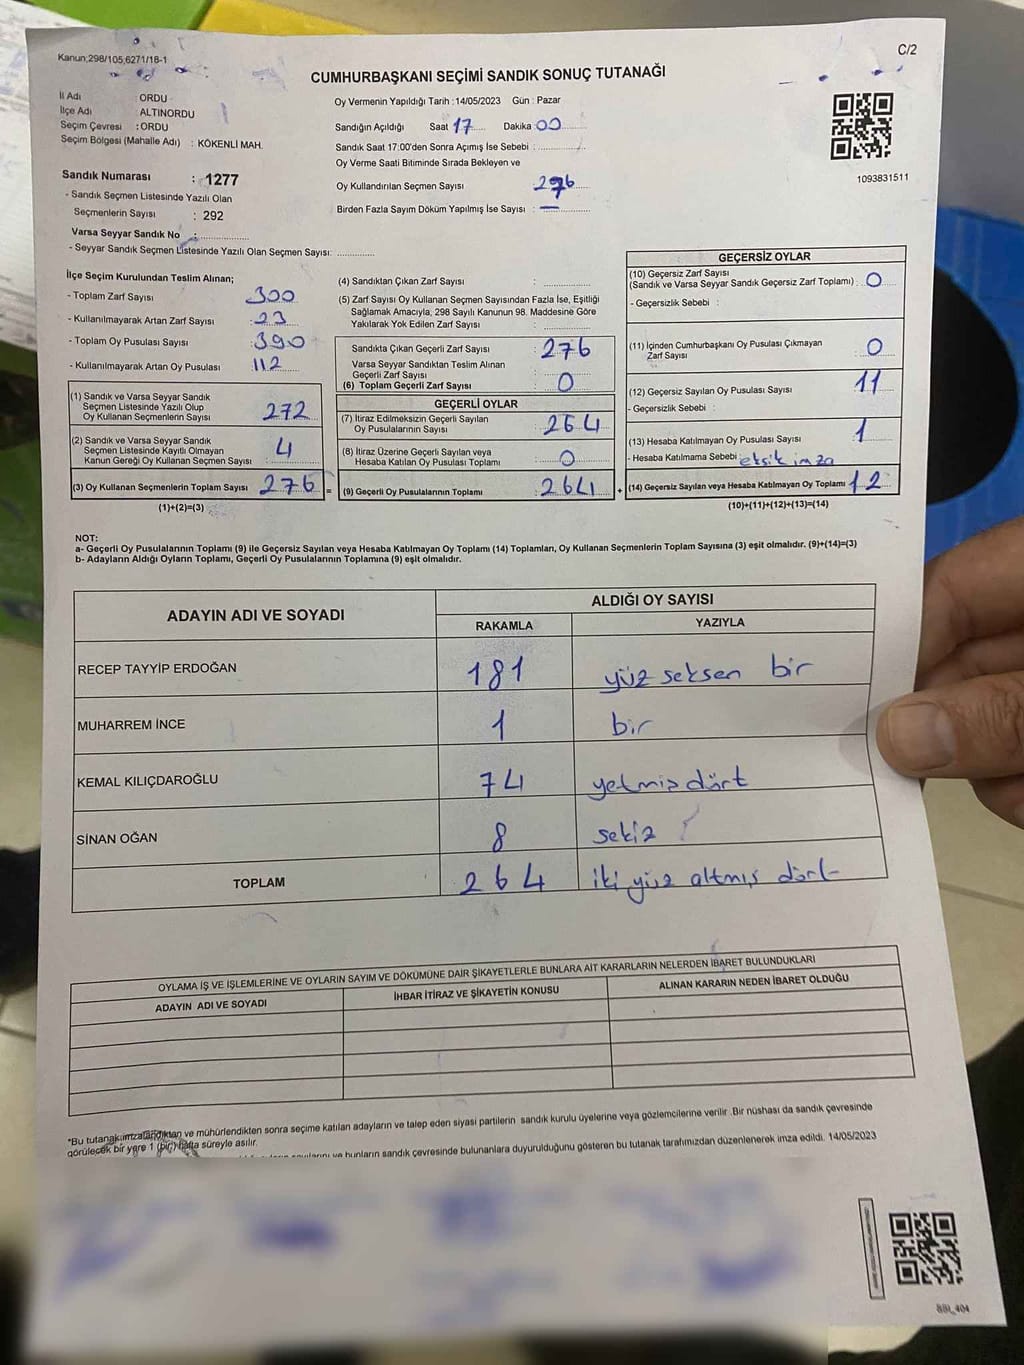 Kanun;298/105,6271/18-1
C/2
CUMHURBAŞKANI SEÇİMİ SANDIK SONUÇ TUTANAĞI
İl Adı : ORDU
İlçe Adı : ALTINORDU
Seçim Çevresi : ORDU
Seçim Bölgesi (Mahalle Adı) : KÖKENLİ MAH.
Sandık Numarası : 1277
- Sandık Seçmen Listesinde Yazılı Olan
Seçmenlerin Sayısı : 292
Varsa Seyyar Sandık No :
- Seyyar Sandık Seçmen Listesinde Yazılı Olan Seçmen Sayısı:
Oy Vermenin Yapıldığı Tarih :14/05/2023 Gün : Pazar
Sandığın Açıldığı Saat 17 Dakika 00
Sandık Saat 17:00'den Sonra Açımış İse Sebebi :
Oy Verme Saati Bitiminde Sırada Bekleyen ve
Oy Kullandırılan Seçmen Sayısı : 276
Birden Fazla Sayım Döküm Yapılmış İse Sayısı : —
1093831511
İlçe Seçim Kurulundan Teslim Alınan;
- Toplam Zarf Sayısı : 300
- Kullanılmayarak Artan Zarf Sayısı : 23
- Toplam Oy Pusulası Sayısı : 390
- Kullanılmayarak Artan Oy Pusulası : 112
(1) Sandık ve Varsa Seyyar Sandık
Seçmen Listesinde Yazılı Olup
Oy Kullanan Seçmenlerin Sayısı : 272
(2) Sandık ve Varsa Seyyar Sandık
Seçmen Listesinde Kayıtlı Olmayan
Kanun Gereği Oy Kullanan Seçmen Sayısı : 4
(3) Oy Kullanan Seçmenlerin Toplam Sayısı : 276 =
(1)+(2)=(3)
(4) Sandıktan Çıkan Zarf Sayısı :
(5) Zarf Sayısı Oy Kullanan Seçmen Sayısından Fazla İse, Eşitliği
Sağlamak Amacıyla, 298 Sayılı Kanunun 98. Maddesine Göre
Yakılarak Yok Edilen Zarf Sayısı :
Sandıkta Çıkan Geçerli Zarf Sayısı : 276
Varsa Seyyar Sandıktan Teslim Alınan
Geçerli Zarf Sayısı
(6) Toplam Geçerli Zarf Sayısı : 0
GEÇERLİ OYLAR
(7) İtiraz Edilmeksizin Geçerli Sayılan
Oy Pusulalarının Sayısı : 264
(8) İtiraz Üzerine Geçerli Sayılan veya
Hesaba Katılan Oy Pusulası Toplamı : 0
(9) Geçerli Oy Pusulalarının Toplamı : 264 +
GEÇERSİZ OYLAR
(10) Geçersiz Zarf Sayısı
(Sandık ve Varsa Seyyar Sandık Geçersiz Zarf Toplamı) : 0
- Geçersizlik Sebebi :
(11) İçinden Cumhurbaşkanı Oy Pusulası Çıkmayan
Zarf Sayısı : 0
(12) Geçersiz Sayılan Oy Pusulası Sayısı : 11
- Geçersizlik Sebebi :
(13) Hesaba Katılmayan Oy Pusulası Sayısı : 1
- Hesaba Katılmama Sebebi : eksik imza
(14) Geçersiz Sayılan veya Hesaba Katılmayan Oy Toplamı : 12
(10)+(11)+(12)+(13)=(14)
NOT:
a- Geçerli Oy Pusulalarının Toplamı (9) ile Geçersiz Sayılan veya Hesaba Katılmayan Oy Toplamı (14) Toplamları, Oy Kullanan Seçmenlerin Toplam Sayısına (3) eşit olmalıdır. (9)+(14)=(3)
b- Adayların Aldığı Oyların Toplamı, Geçerli Oy Pusulalarının Toplamına (9) eşit olmalıdır.
ADAYIN ADI VE SOYADI
ALDIĞI OY SAYISI
RAKAMLA YAZIYLA
RECEP TAYYİP ERDOĞAN 181 yüz seksen bir
MUHARREM İNCE 1 bir
KEMAL KILIÇDAROĞLU 74 yetmiş dört
SİNAN OĞAN 8 sekiz
TOPLAM 264 iki yüz altmış dört
OYLAMA İŞ VE İŞLEMLERİNE VE OYLARIN SAYIM VE DÖKÜMÜNE DAİR ŞİKAYETLERLE BUNLARA AİT KARARLARIN NELERDEN İBARET BULUNDUKLARI
ADAYIN ADI VE SOYADI İHBAR İTİRAZ VE ŞİKAYETİN KONUSU ALINAN KARARIN NEDEN İBARET OLDUĞU
*Bu tutanak imzalandıktan ve mühürlendikten sonra seçime katılan adayların ve talep eden siyasi partilerin sandık kurulu üyelerine veya gözlemcilerine verilir .Bir nüshası da sandık çevresinde
görülecek bir yere 1 (bir) hafta süreyle asılır.
ve bunların sandık çevresinde bulunanlara duyurulduğunu gösteren bu tutanak tarafımızdan düzenlenerek imza edildi. 14/05/2023